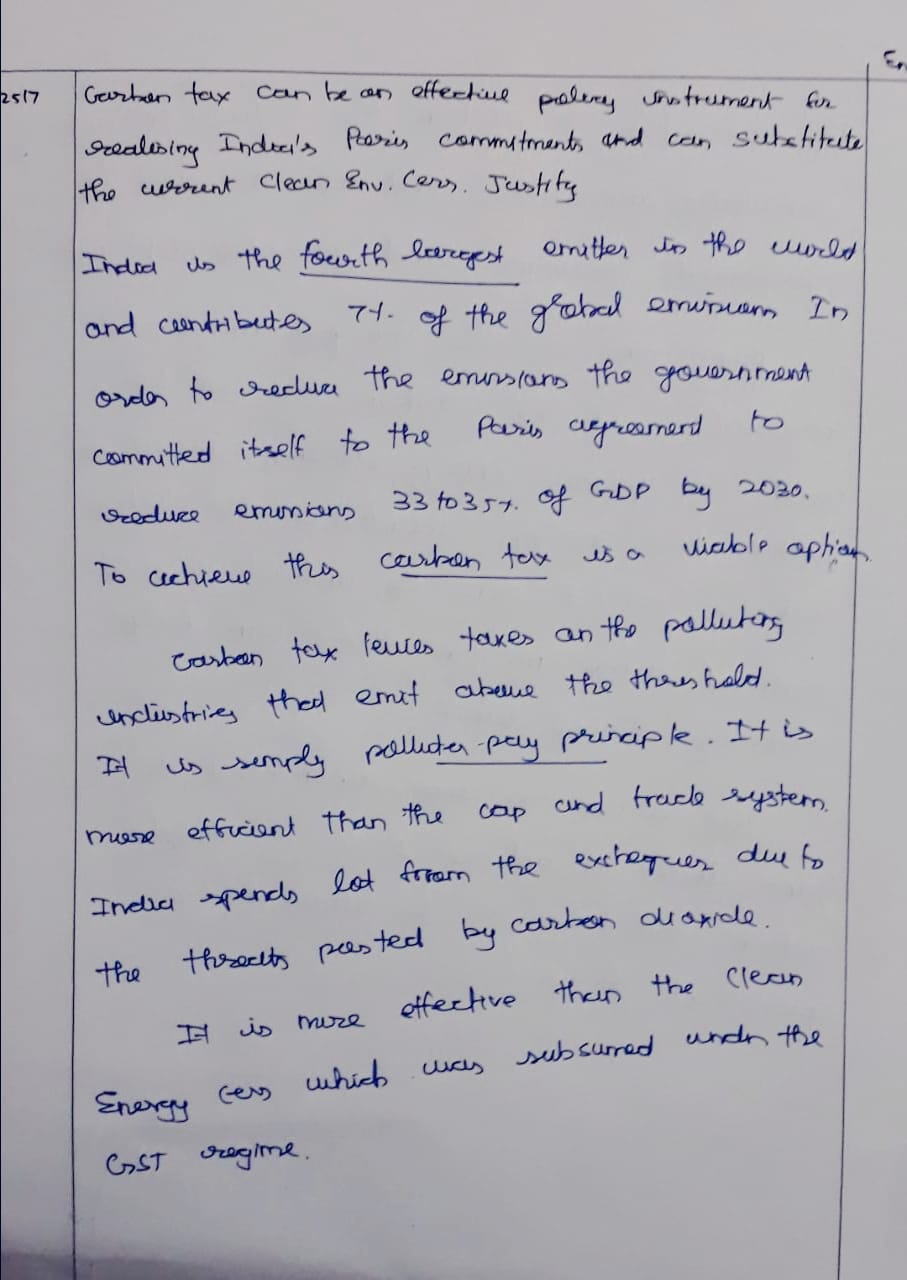 En
2517
Carbon tax can be an effective policy instrument for
realising India's Paris commitments and can substitute
the current Clean Env. Cess. Justify
India is the fourth largest emitter in the world
and contributes 7%. of the global emissions In
order to reduce the emissions the government
committed itself to the Paris agreement to
reduce emissions 33 to 35%. of GDP by 2030.
To achieve this carbon tax is a viable option.
Carbon tax levies taxes on the polluting
industries that emit above the threshold.
It is simply polluter-pay principle. It is
more efficient than the cap and trade system.
India spends lot from the exchequer due to
the threats posted by carbon dioxide.
It is more effective than the Clean
Energy Cess which was subsumed under the
GST regime.